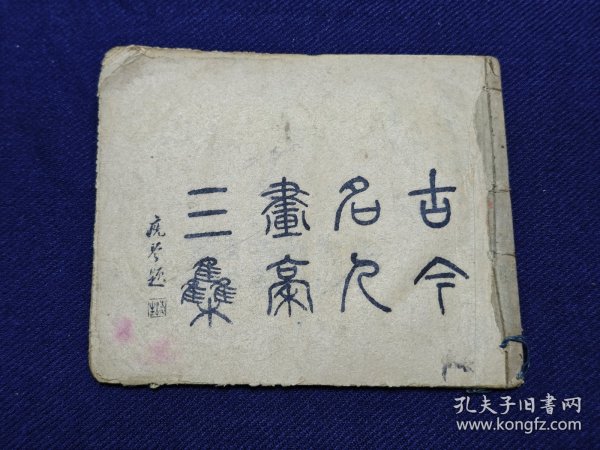 古今
名人
畫稾
三集
題
孔夫子旧書网
www.kongfz.com